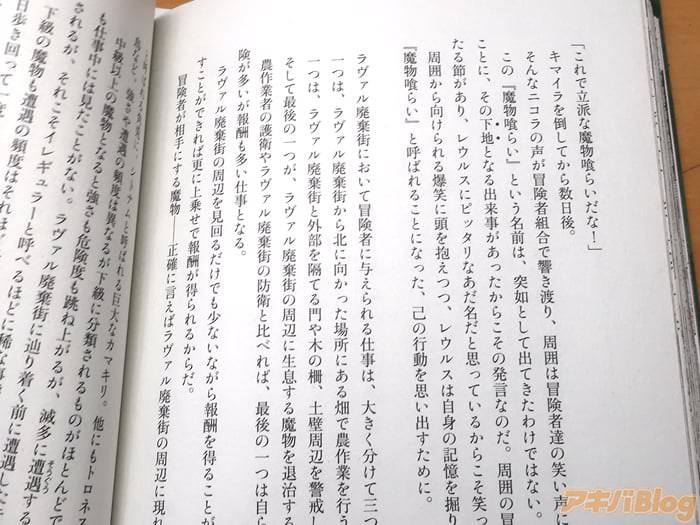 「これで立派な魔物喰らいだな！」
キマイラを倒してから数日後。
そんなニコラの声が冒険者組合で響き渡り、周囲は冒険者達の笑い声に
この『魔物喰らい』という名前は、突如として出てきたわけではない。
ことに、その下地となる出来事があったからこその発言なのだ。周囲の冒
たる節があり、レウルスにピッタリなあだ名だと思っているからこそ笑っ
周囲から向けられる爆笑に頭を抱えつつ、レウルスは自身の記憶を掘り
『魔物喰らい』と呼ばれることになった、己の行動を思い出すために。
ラヴァル廃棄街において冒険者に与えられる仕事は、大きく分けて三つ
一つは、ラヴァル廃棄街から北に向かった場所にある畑で農作業を行う
一つは、ラヴァル廃棄街と外部を隔てる門や木の柵、土壁周辺を警戒し
そして最後の一つが、ラヴァル廃棄街の周辺に生息する魔物を退治する
農作業者の護衛やラヴァル廃棄街の防衛と比べれば、最後の一つは自ら
険が多いが報酬も多い仕事となる。
ラヴァル廃棄街の周辺を見回るだけでも少ないながら報酬を得ることが
すことができれば更に上乗せで報酬が得られるからだ。
冒険者が相手にする魔物――正確に言えばラヴァル廃棄街の周辺に現れ
シトナムと呼ばれる巨大なカマキリ。他にもトロネス
強さや遭遇の頻度は異なるが下級に分類されるものがほとんどで
中級以上の魔物となると強さも危険度も跳ね上がるが、滅多に遭遇する
も仕事中には見たことがない。ラヴァル廃棄街に辿り着く前に遭遇した
されるが、それこそイレギュラーと呼べるほどに稀な
下級の魔物も遭遇の頻度はそれほど
日歩き回って一度
アキバBlog